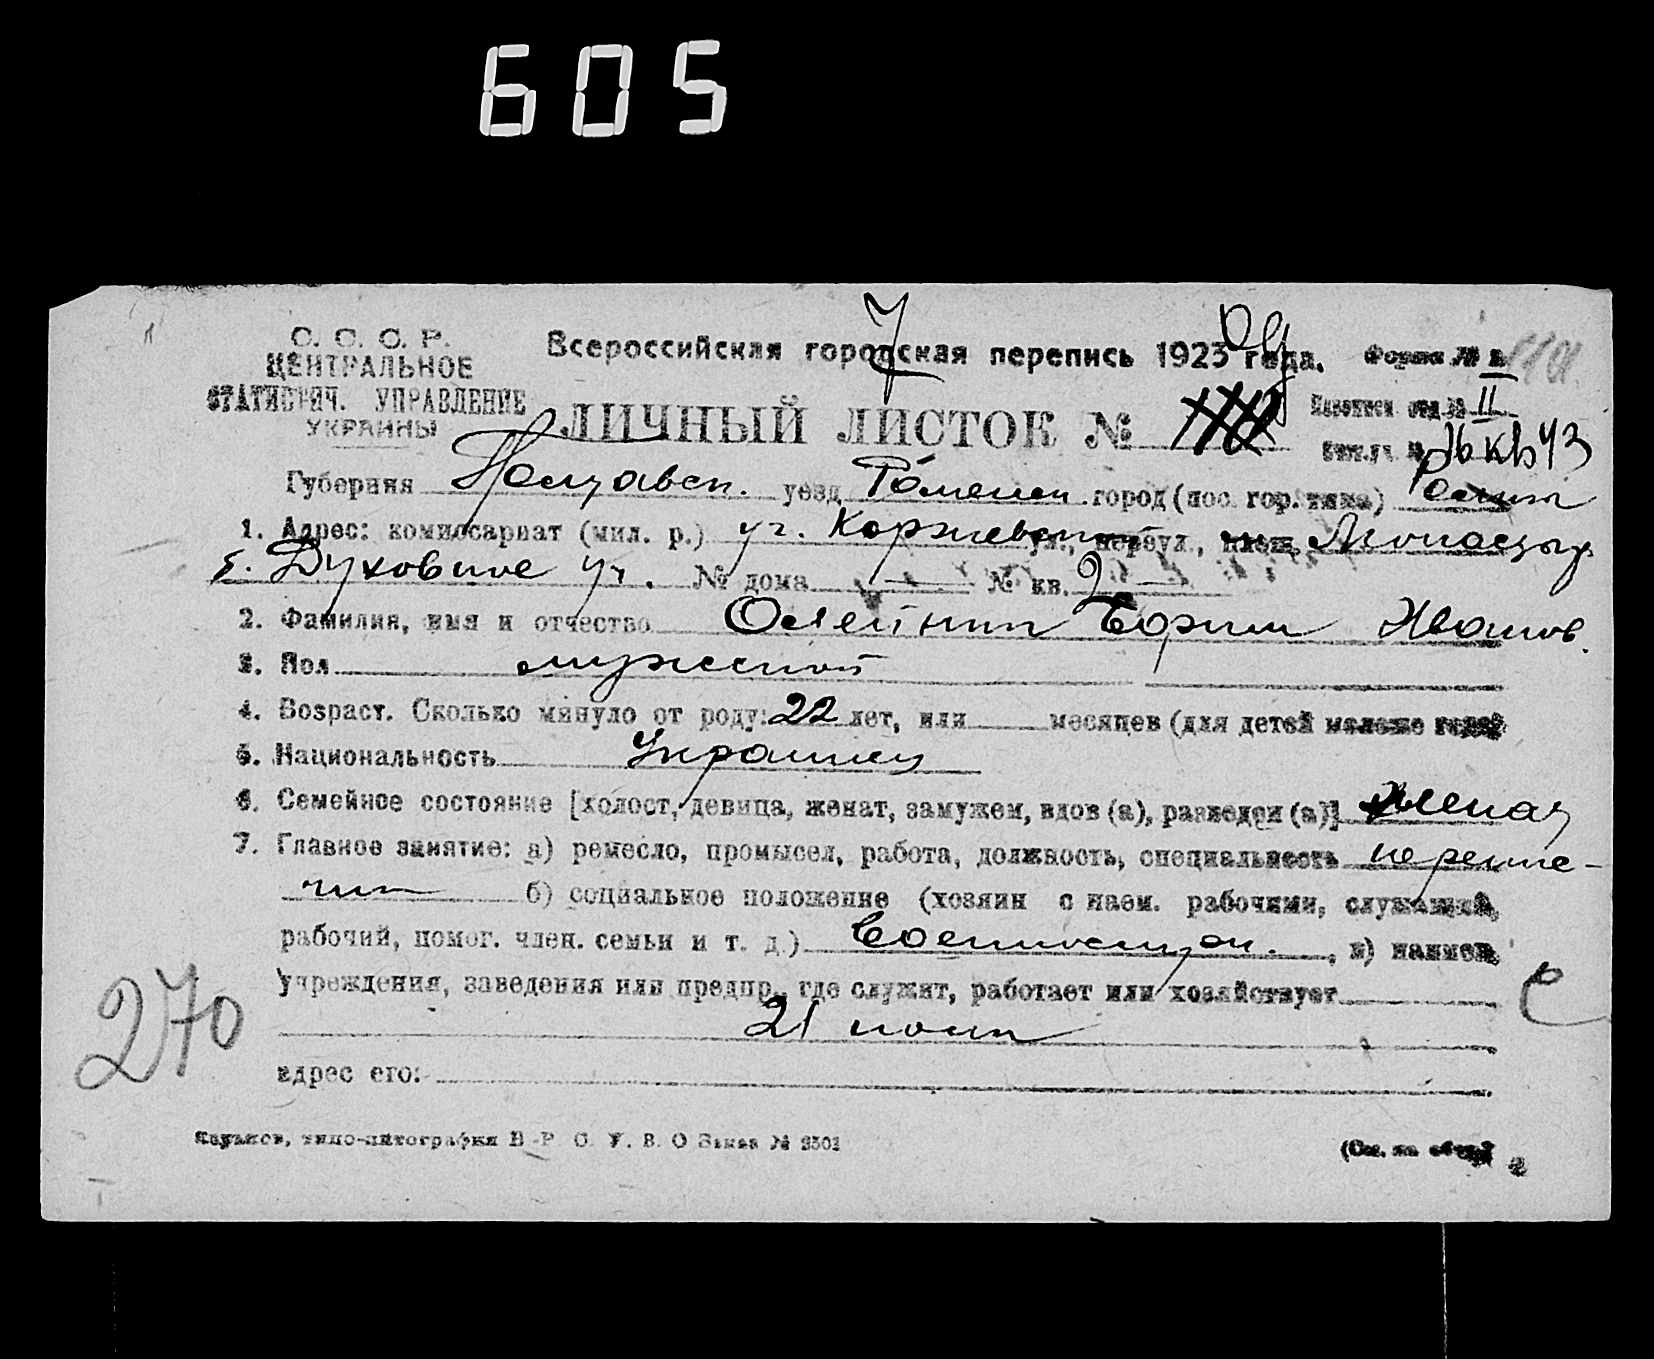 605
С. С. С. Р.
ЦЕНТРАЛЬНОЕ
СТАТИСТИЧ. УПРАВЛЕНИЕ
УКРАИНЫ
Всероссийская городская перепись 1923 года. Форма № 2
7
ЛИЧНЫЙ ЛИСТОК №
II
Губерния Полтавск. уезд Роменск. город (пос. гор. типа) Ромны
1. Адрес: комиссариат (мил. р.) уг. Коржевской ул., переул., площ.
Духовное уч. № дома — № кв. —
2. Фамилия, имя и отчество Олейник Борис Иванов.
3. Пол мужской
4. Возраст. Сколько минуло от роду: 22 лет, или месяцев (для детей моложе года)
5. Национальность Украинец
6. Семейное состояние [холост, девица, женат, замужем, вдов (а), разведен (а)] женат
7. Главное занятие: а) ремесло, промысел, работа, должность, специальность перепис-
чик б) социальное положение (хозяин с наем. рабочими, служащий,
рабочий, помог. член. семьи и т. д.) Военнослуж. , в) наимен.
учреждения, заведения или предпр., где служит, работает или хозяйствует
21 полк
адрес его:
270
Харьков, типо-литография В. Р. С. У. В. О Заказ №
(См. на обор.)